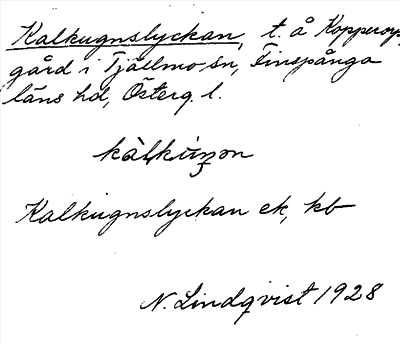 Kalkugnslyckan, t. å Kopperorps
gård i Tjällmo sn, Finspånga
läns hd, Österg. l.
Kalkugnslyckan ek, kb
N. Lindqvist 1928